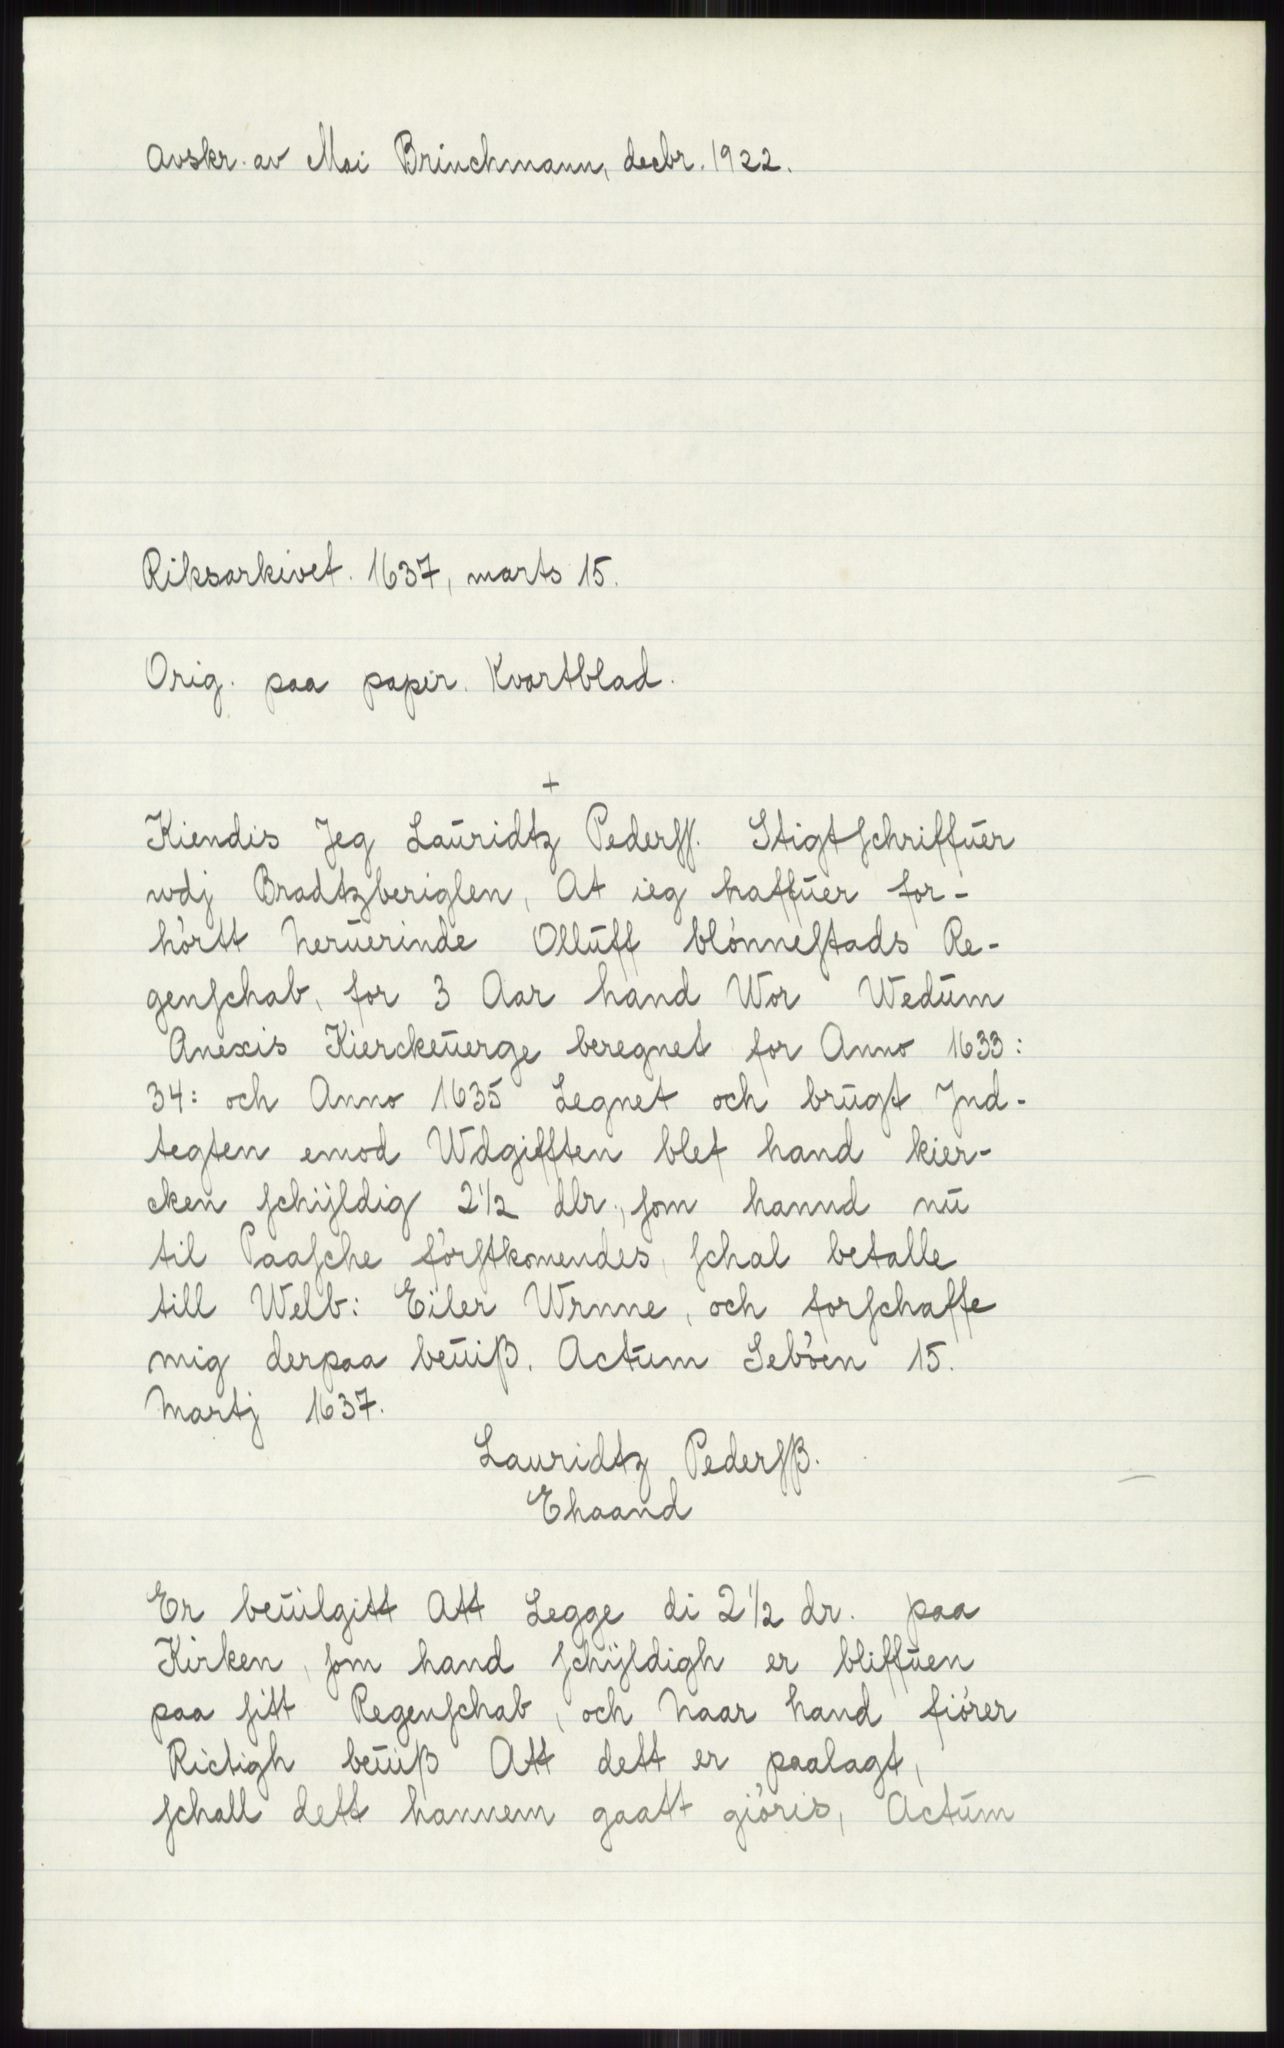 Avskr. av Mai Brinchmann, decbr. 1922.
Riksarkivet. 1637, marts 15.
Orig. paa papir. Kvartblad.
+
Kiendis Jeg Laūridtz Pederſſ. Stigtſchriffūer
wdj Bradtzberiglen, At ieg haffūer for-
hórtt Nerūerinde Ollūff blónneſtads Re-
genſchab, for 3 Aar hand Wor Wedūm
Anexis Kierckeūerge beregnet for Anno 1633:
34: och Anno 1635 Legnet och brūgt Jnd-
tegten emod Wdgifften blef hand kier-
cken ſchÿldig 2½ dlr., ſom hannd nū
til Paaſche fórſtkomendes, ſchal betalle
till Welb: Eiler Wrnne, och forſchaffe
mig derpaa beūiß. Actūm Sebóen 15.
Martj 1637.
Lauridtz Pederſß.
Ehaand
Er beūilgitt Att Legge di 2½ dr. paa
Kirken, ſom hand ſchÿldigh er bliffūen
paa ſitt Regenſchab, och Naar hand fiórer
Rictigh beūiß Att dett er paalagt,
ſchall dett hannem gaatt gióris, Actūm